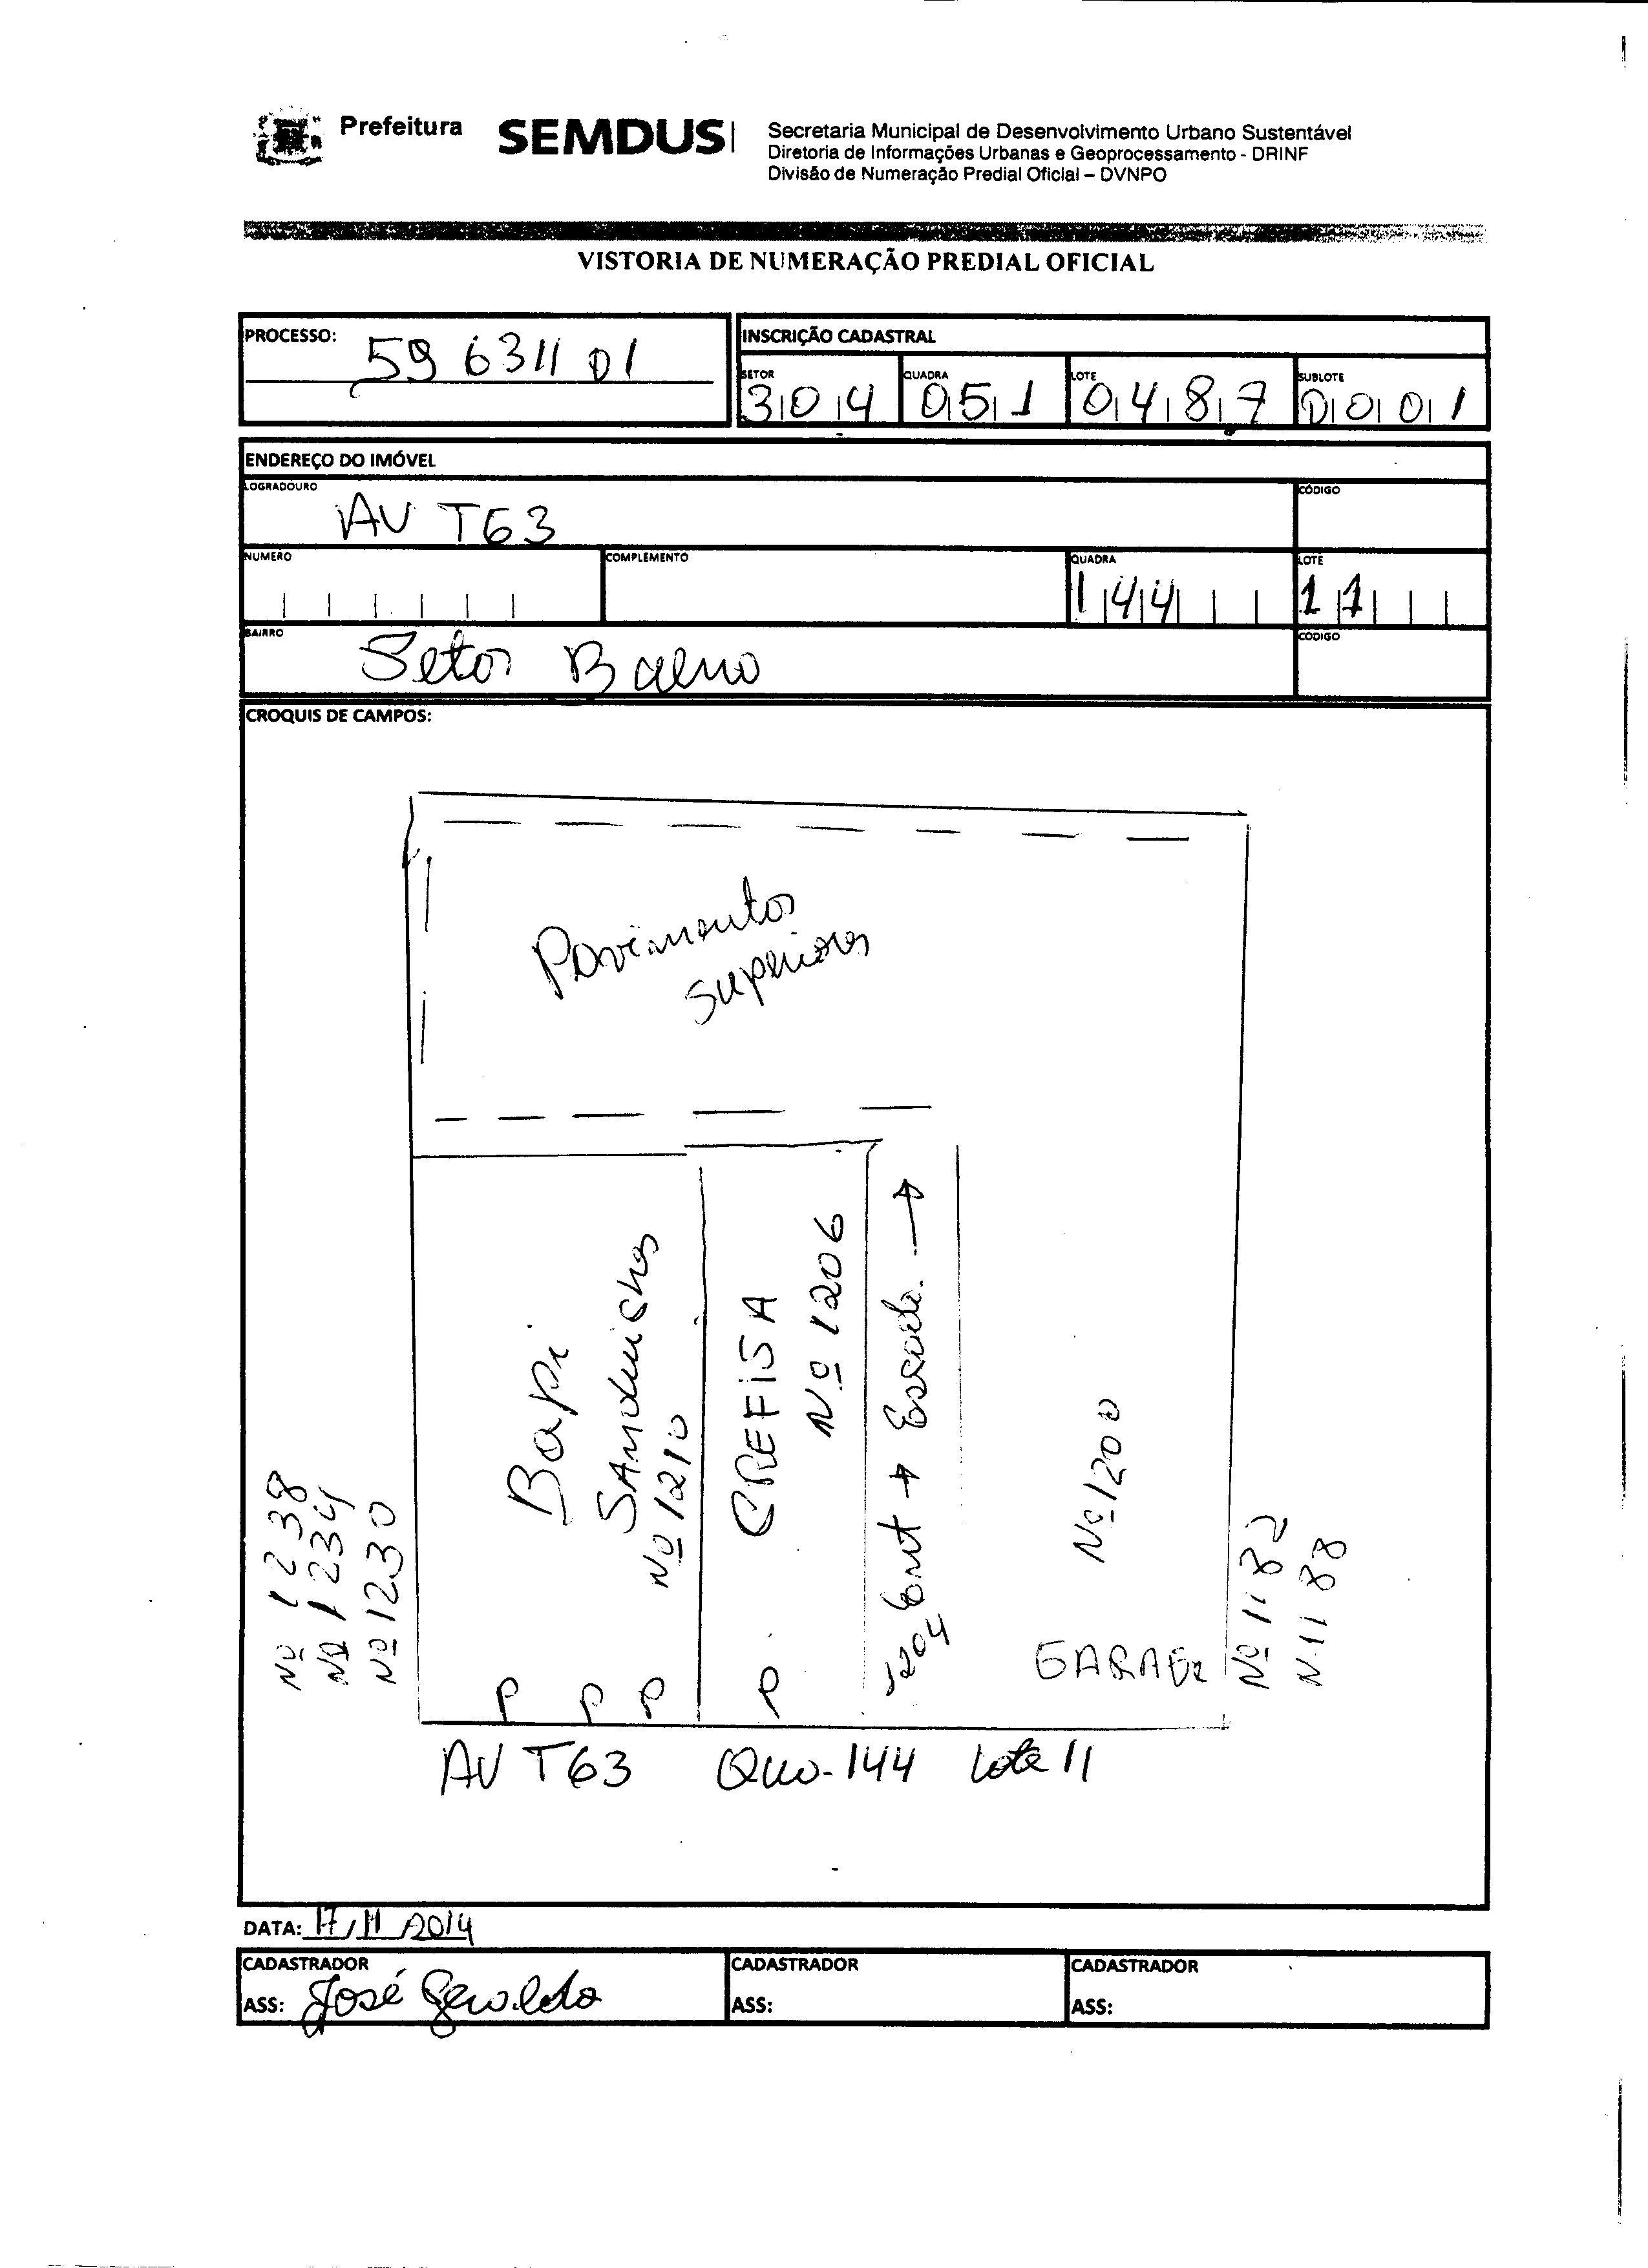 Prefeitura SEMDUS
Secretaria Municipal de Desenvolvimento Urbano Sustentável
Diretoria de Informações Urbanas e Geoprocessamento - DRINF
Divisão de Numeração Predial Oficial – DVNPO
VISTORIA DE NUMERAÇÃO PREDIAL OFICIAL
PROCESSO: 59631101
INSCRIÇÃO CADASTRAL
SETOR 304 QUADRA 051 LOTE 0487 SUBLOTE 0001
ENDEREÇO DO IMÓVEL
LOGRADOURO AV T63 CÓDIGO
NUMERO COMPLEMENTO QUADRA 144 LOTE 11
BAIRRO Setor Bueno CÓDIGO
CROQUIS DE CAMPOS:
Pavimentos
superiores
Nº 1238
Nº 1234
Nº 1230
Bapi
SAnduiches
Nº 1210
CREFISA
Nº 1206
Ent → Escada →
1204
Nº 1200
GARAGE
Nº 1182
N 1188
P P P P
AV T63 Qua-144 Lote 11
DATA: 17/11/2014
CADASTRADOR CADASTRADOR CADASTRADOR
ASS: José Geraldo ASS: ASS: